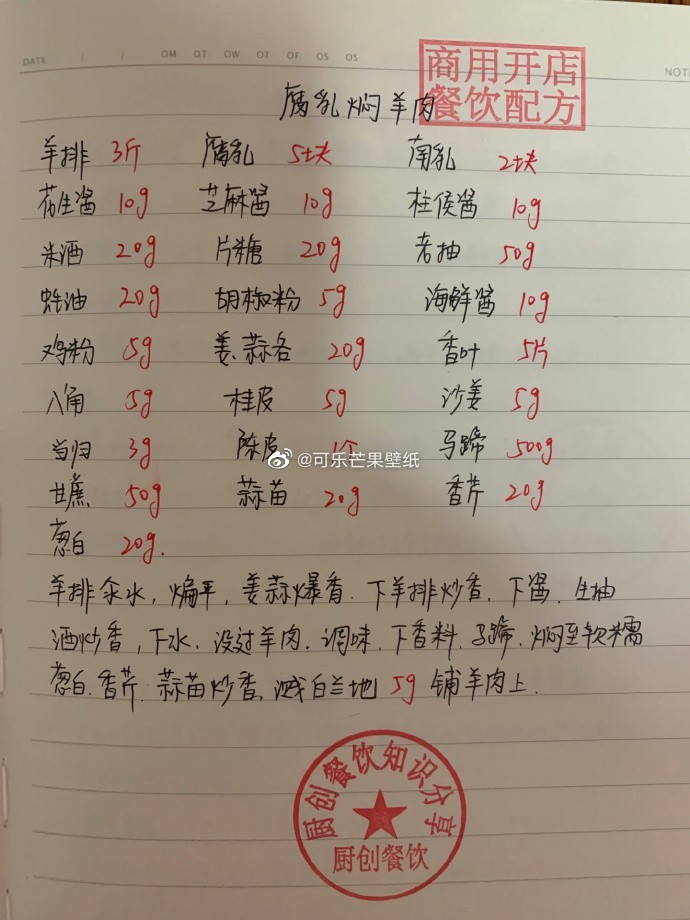 DATE / / OM OT OW OT OF OS OS
商用开店
餐饮配方
腐乳焖羊肉
羊排 3斤 腐乳 5块 南乳 2块
花生酱 10g 芝麻酱 10g 柱侯酱 10g
米酒 20g 片糖 20g 老抽 50g
蚝油 20g 胡椒粉 5g 海鲜酱 10g
鸡粉 5g 姜、蒜各 20g 香叶 5片
八角 5g 桂皮 5g 沙姜 5g
当归 3g 陈皮 1个 马蹄 500g
@可乐芒果壁纸
甘蔗 50g 蒜苗 20g 香芹 20g
葱白 20g.
羊排汆水,煸干,姜蒜爆香.下羊排炒香.下酱.生抽
酒炒香,下水.没过羊肉.调味.下香料.马蹄.焖至软糯
葱白.香芹.蒜苗炒香,溅白兰地 5g 铺羊肉上.
厨创餐饮知识分享
厨创餐饮